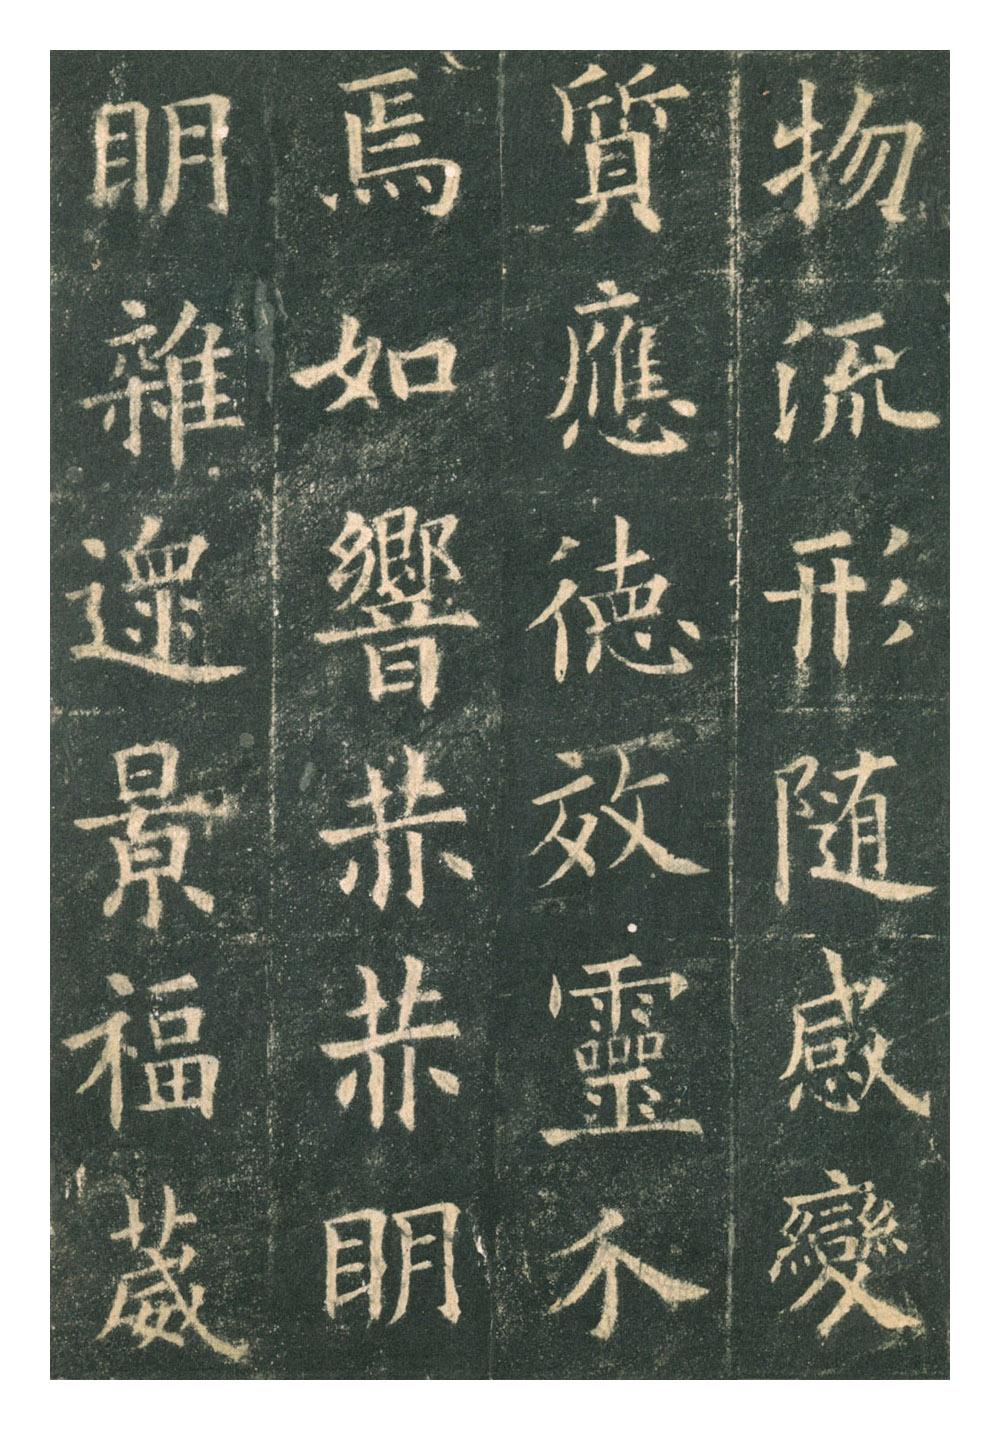 物流形随感變
質應德效靈不
焉如響恭恭明
明雜遝景福葳